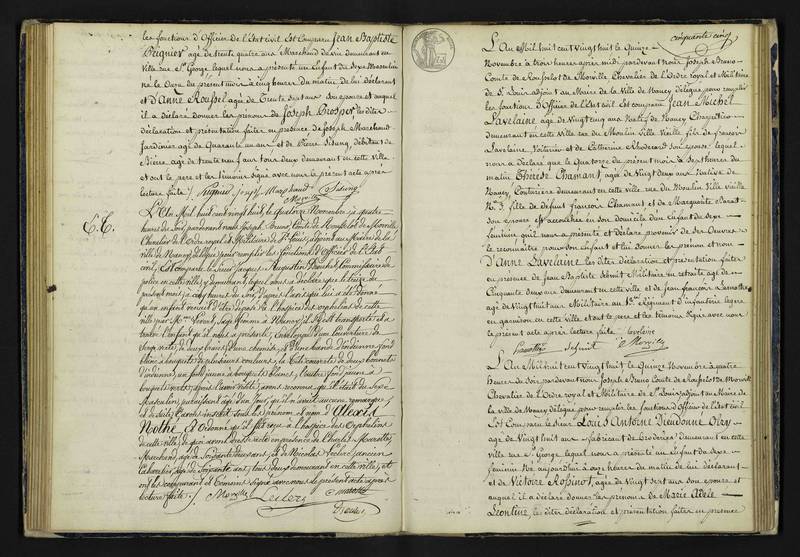 les fonctions d'Officier de l'Etat civil Est Comparu Jean Baptiste
Peignier agé de trente quatre ans Marchand de vin demeurant en
ville rue St George lequel nous a présenté un Enfant du Sexe Masculin
né le Onze du présent mois à cinq heures du matin, de lui déclarant
et D'Anne Roussel agée de Trente Sept ans Son épouse et auquel
il a déclaré donner les prénoms de Joseph Prosper les dites
déclaration et présentation faites en présence de Joseph Marchand
Jardinier agé de Quarante un ans et de Pierre Sidung, débitant de
Bière agé de trente neuf ans tous deux demeurant en cette ville
et ont le père et les témoins signé avec nous le présent acte après
lecture faite
Peignier Joseph Marchand Sidung
Morville
L'An Mil huit cent vingt huit, le quatorze Novembre, à quatre
heures du Soir, pardevant nous Joseph Bruno, Comte de Rousselot de Morville,
Chevalier de l'Ordre royal et Militaire de St Louis, adjoint au Maire de la
ville de Nancy, délégué pour remplir les fonctions d'Officier de l'Etat
civil, Est Comparu le Sieur Jacques Augustin Commissaire de
police en cette ville, y demeurant, lequel nous a déclaré que le treize du
présent mois, à cinq heures du Soir, d'après l'avis qui lui a été donné
qu'un enfant venait d'être déposé à l'hospice des orphelins de cette
ville par Me Sage femme à Nancy, il s'y est transporté et a
trouvé l'enfant qu'il nous a présenté, Enveloppé d'une couverture de
d'une chemise, et d'une bande d'indienne fond
blanc à bouquets de plusieurs couleurs, la tête couverte de deux bonnets
d'indienne, un fond jaune à bouquets blancs, l'autre fond jaune à
bouquets verts; après l'avoir visité, avons reconnu qu'il était du Sexe
Masculin, paraissant agé d'un jour, qu'il n'avait aucune remarque;
et de suite l'avons inscrit sous les prénom et nom d'Alexis
Nothe, et ordonné qu'il fut reçu à l'hospice des Orphelins
de cette ville; de quoi avons dressé acte en présence de Charles Marotte,
Marchand, agé de Soixante deux ans, et de Nicolas Leclerc ancien
agé de Soixante ans, tous deux demeurant en cette ville; et
ont les comparant et témoins signé avec nous le présent acte après
lecture faite.
Morville Leclerc Marotte
cinquante cinq
L'An Mil huit cent Vingt huit le Quinze
Novembre à Trois heures après midi pardevant nous Joseph Bruno
Comte de Rousselot de Morville Chevalier de l'Ordre royal et Militaire
de St Louis adjoint au Maire de la Ville de Nancy délégué pour remplir
les fonctions d'Officier de l'Etat civil Est comparu Jean Michel
Lavelaine agé de vingt cinq ans Natif de Nancy Charpentier
demeurant en cette Ville rue du Moulin Ville Vieille fils de françois
Lavelaine, Voiturier et de Catherine Son épouse lequel
nous a déclaré que le Quatorze du présent mois à Sept heures du
matin Thérèse Chamant agée de Vingt deux ans Native de
Nancy, Couturière demeurant en cette ville rue du Moulin Ville Vieille
No 3 fille de défunt françois Chamant et de Marguerite
son épouse est accouchée en son domicile d'un Enfant du Sexe
féminin qu'il nous a présenté et déclaré provenir de ses Oeuvres
le reconnaitre pour son Enfant et lui donner les prénom et nom
D'Anne Lavelaine les dites déclaration et présentation faites
en présence de Jean Baptiste Militaire en retraite agé de
Cinquante deux ans demeurant en cette ville et de Jean françois Lamothe
agé de Vingt huit ans Militaire au 18e Régiment d'infanterie légère
en garnison en cette ville et ont le père et les témoins signé avec nous
le présent acte après lecture faite
Lamothe Morville
L'An Mil huit cent Vingt huit le Quinze Novembre à quatre
heures du Soir pardevant nous Joseph Bruno Comte de Rousselot de Morville
Chevalier de l'Ordre royal et Militaire de St Louis adjoint au Maire de
la ville de Nancy délégué pour remplir les fonctions d'Officier de l'Etat civil
Est Comparu le Sieur Louis Antoine Dieudonné Olry
agé de Vingt huit ans fabricant de Broderies demeurant en cette
ville rue St George lequel nous a présenté un Enfant du Sexe
féminin Né aujourd'hui à onze heures du matin de lui déclarant
et de Victoire Rossinot, agée de Vingt Sept ans Son épouse et
auquel il a déclaré donner les prénoms de Marie Adèle
Léontine, les dites déclaration et présentation faites en présence